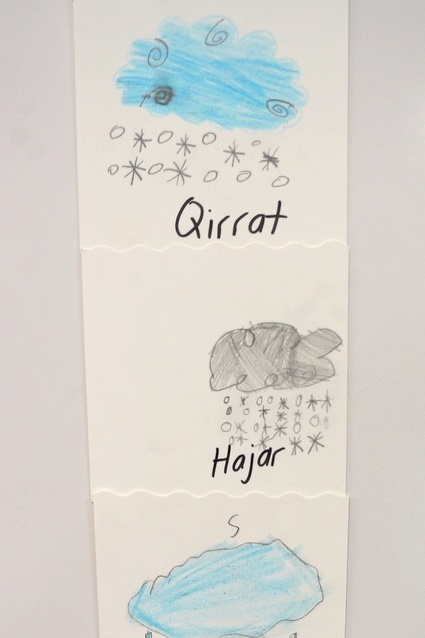 Qirrat
Hajar
S